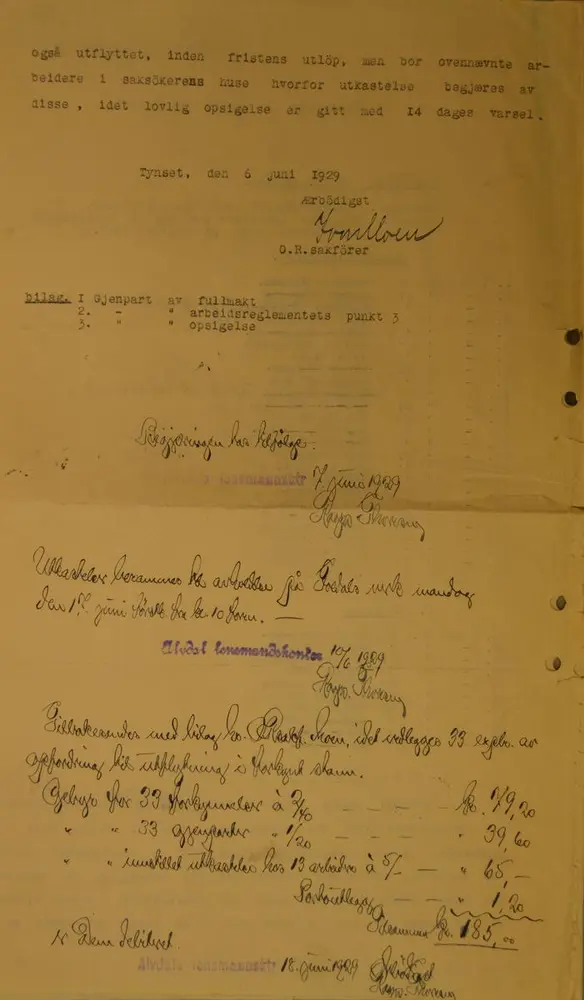 også utflyttet, inden fristens utlöp, men bor ovennævnte ar-
beidere i saksökerens huse hvorfor utkastelse begjæres av
disse, idet lovlig opsigelse er gitt med I4 dages varsel.
Tynset, den 6 juni I929
Ærbödigst
O.R.sakförer
bilag. I Gjenpart av fullmakt
2. - " arbeidsreglementets punkt 3
3. " " opsigelse
Begjæringen tas tilfölge.
lensmannsktr 7. juni 1929
Utkastelse berammes til avholdelse på Foldals verk mandag
den 17. juni førstk. fra kl. 10 form. —
Alvdal lensmandskontor 10/6 1929
Tilbakesendes med bilag hr. idet vedlegges 33 expl. av
opfordring til utflytning i forkynt stann.
Gebyr for 33 forkynnelser à 2/40 — — — kr. 79,20
" " 33 gjenparter " 1/20 — — — " 39,60
" " innstillet utkastelse hos 13 arbeidere à 5/- — " 65,—
Portoutlegg — — " 1,20
Tilsammen kr. 185,00
Dem debitert.
Alvdal lensmannsktr 18. juni 1929
Ærbödigst